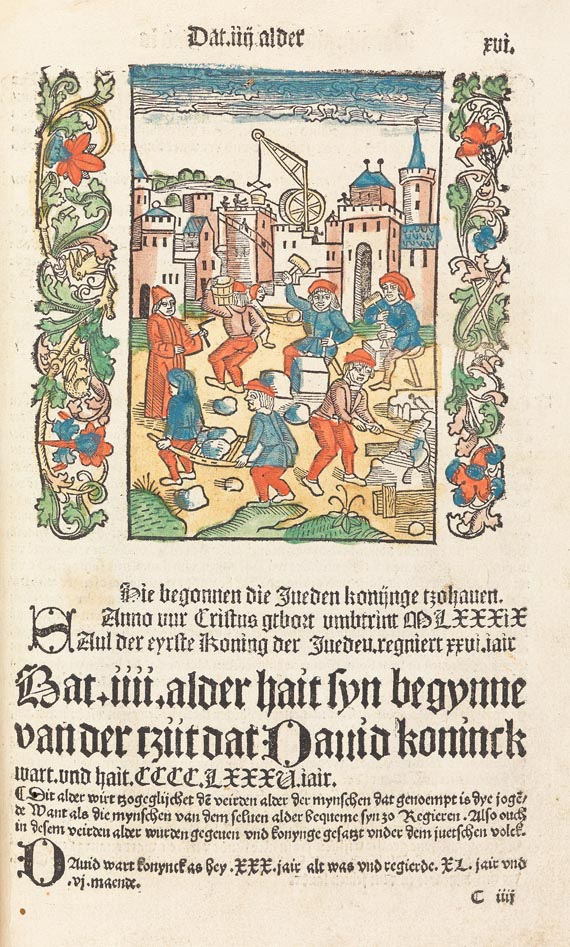 Dat .iiij. alder
xvi.
Hie begonnen die Jueden konijnge tzohauen.
Anno vur Cristus gebort vmbtrint MLXXXIX
SAul der eyrste Koning der Jueden.regniert xxvi.iair
Dat .iiii. alder hait syn begynne
van der tzijt dat Dauid koninck
wart.vnd hait.CCCC.LXXXV.iair.
¶ Dit alder wirt tzogeglijchet dē veirden alder der mynschen dat genoempt is dye joge/
de Want als die mynschen van dem seluen alder bequeme syn zo Regieren. Also ouch
in desem veirden alder wurden gegeuen vnd konynge gesatzt vnder dem juetschen volck.
DAuid wart konynck as hey .XXX. jair alt was vnd regierde. XL. jair vnd
.vj. maende.
C iiij